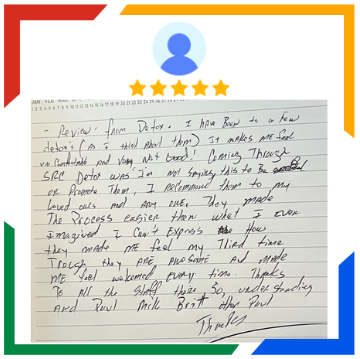 - Review from Detox. I have Been to a few
detox's (As I think about them) It makes me feel
un comfortable and Very Not Good! Coming Through
SRC Detox was I'm not saying this to Be
or Promote Them, I Recommend them to my
Loved ones and any one. They made
The Process easier then what I ever
Imagined I Can't Express How
they made me feel my Third time
Through they ARE AWESOME And made
me feel welcomed every time. Thanks
To All the Staff there So, understanding
And Paul Mick Britt other Paul
Thanks